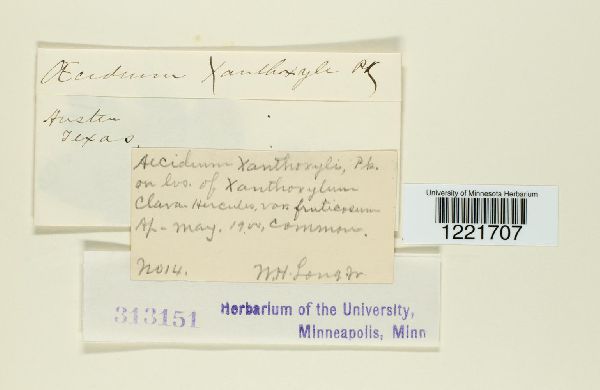 Œcidium Xanthoxyli Pk
Austin
Texas.
Aecidium Xanthoxyli, Pk.
on lvs. of Xanthoxylum
Clava-Herculis, var. fruticosum
Ap - May, 1900, Common.
No 14. W.H. Long Jr.
University of Minnesota Herbarium
1221707
313151 Herbarium of the University,
Minneapolis, Minn